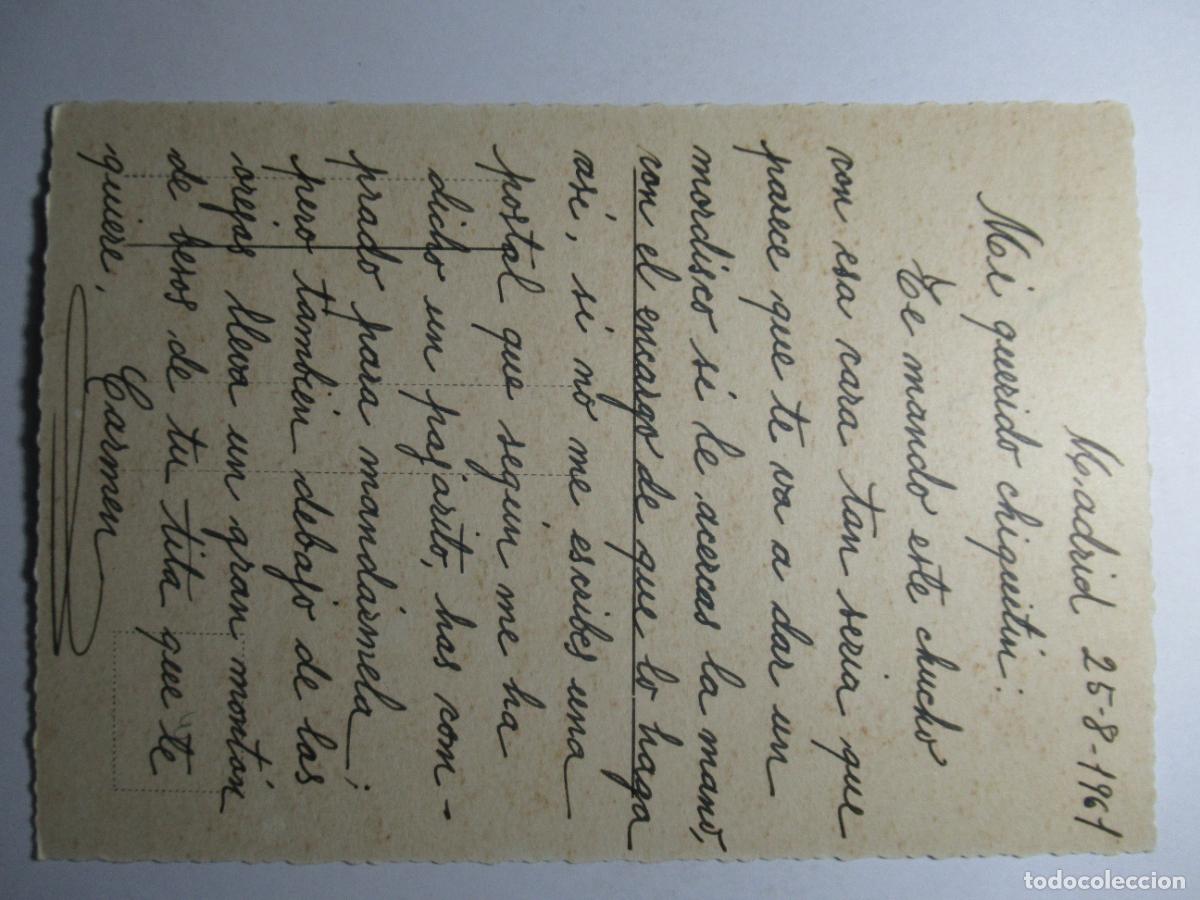 Madrid 25-8-1961
Mi querido chiquitin:
Te mando este chucho
con esa cara tan seria que
parece que te va a dar un
mordisco si le acercas la mano,
con el encargo de que lo haga
asi, si no me escribes una
postal que según me ha
dicho un pajarito, has com-
prado para mandármela;
pero también debajo de las
orejas lleva un gran montón
de besos de tu tita que te
quiere,
Carmen
todocoleccion